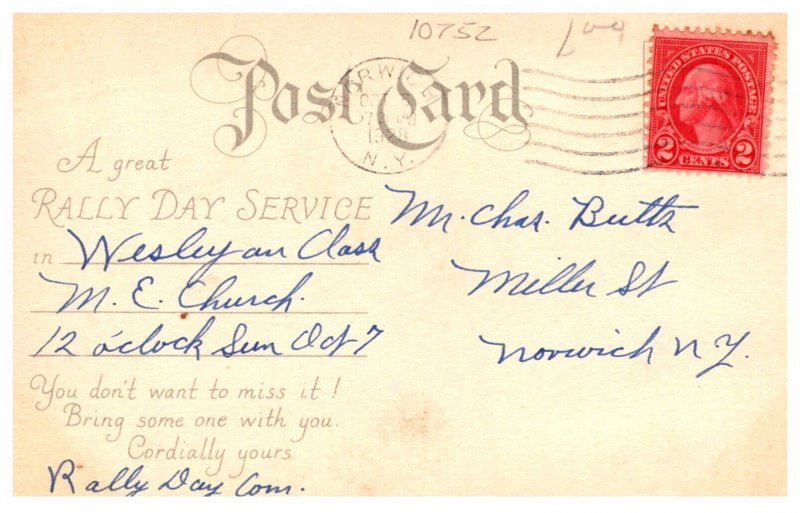 10752
Post Card
NORWICH
N.Y.
UNITED STATES POSTAGE
2 CENTS 2
A great
RALLY DAY SERVICE
in Wesleyan Class
M. E. Church.
12 o'clock Sun Oct 7
You don't want to miss it!
Bring some one with you.
Cordially yours
Rally Day Com.
Mr. Chas. Butts
Miller St
Norwich N.Y.